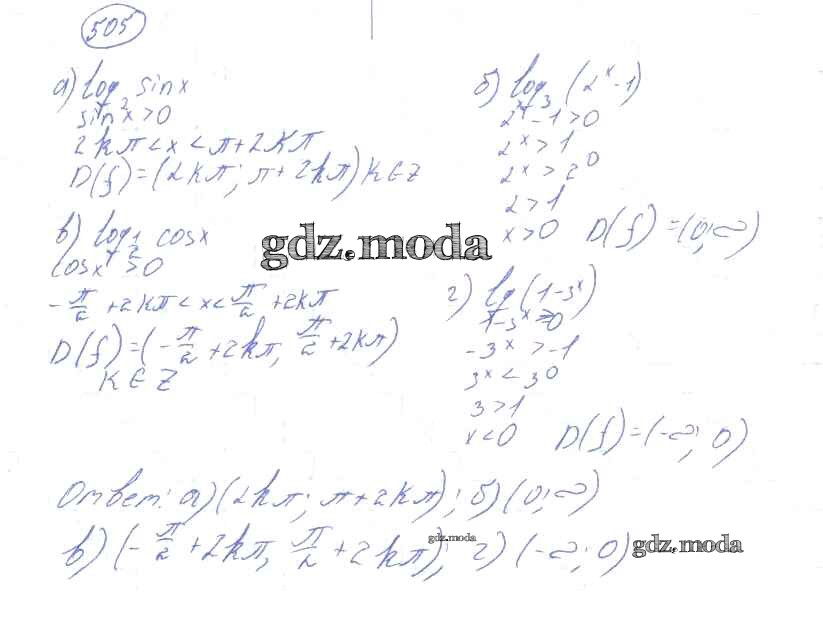 505
а) log₂ sinx
sinx>0
2kπ<x<π+2kπ
D(f)=(2kπ; π+2kπ) k∈Z
б) log₃ (2ˣ-1)
2ˣ-1>0
2ˣ>1
2ˣ>2⁰
2>1
x>0 D(f)=(0;∞)
в) log½ cosx
cosx>0
-π/2+2kπ<x<π/2+2kπ
D(f)=(-π/2+2kπ, π/2+2kπ)
k∈Z
gdz.moda
г) lg(1-3ˣ)
1-3ˣ>0
-3ˣ>-1
3ˣ<3⁰
3>1
x<0 D(f)=(-∞; 0)
Ответ: а)(2kπ; π+2kπ); б)(0;∞)
в)(-π/2+2kπ, π/2+2kπ); г)(-∞;0)
gdz.moda
gdz.moda